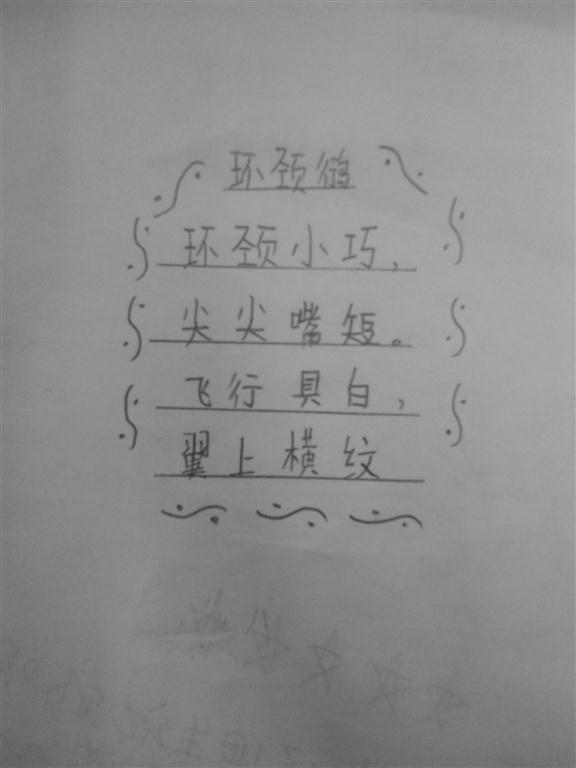 环颈鸻
环颈小巧，
尖尖嘴短。
飞行具白，
翼上横纹